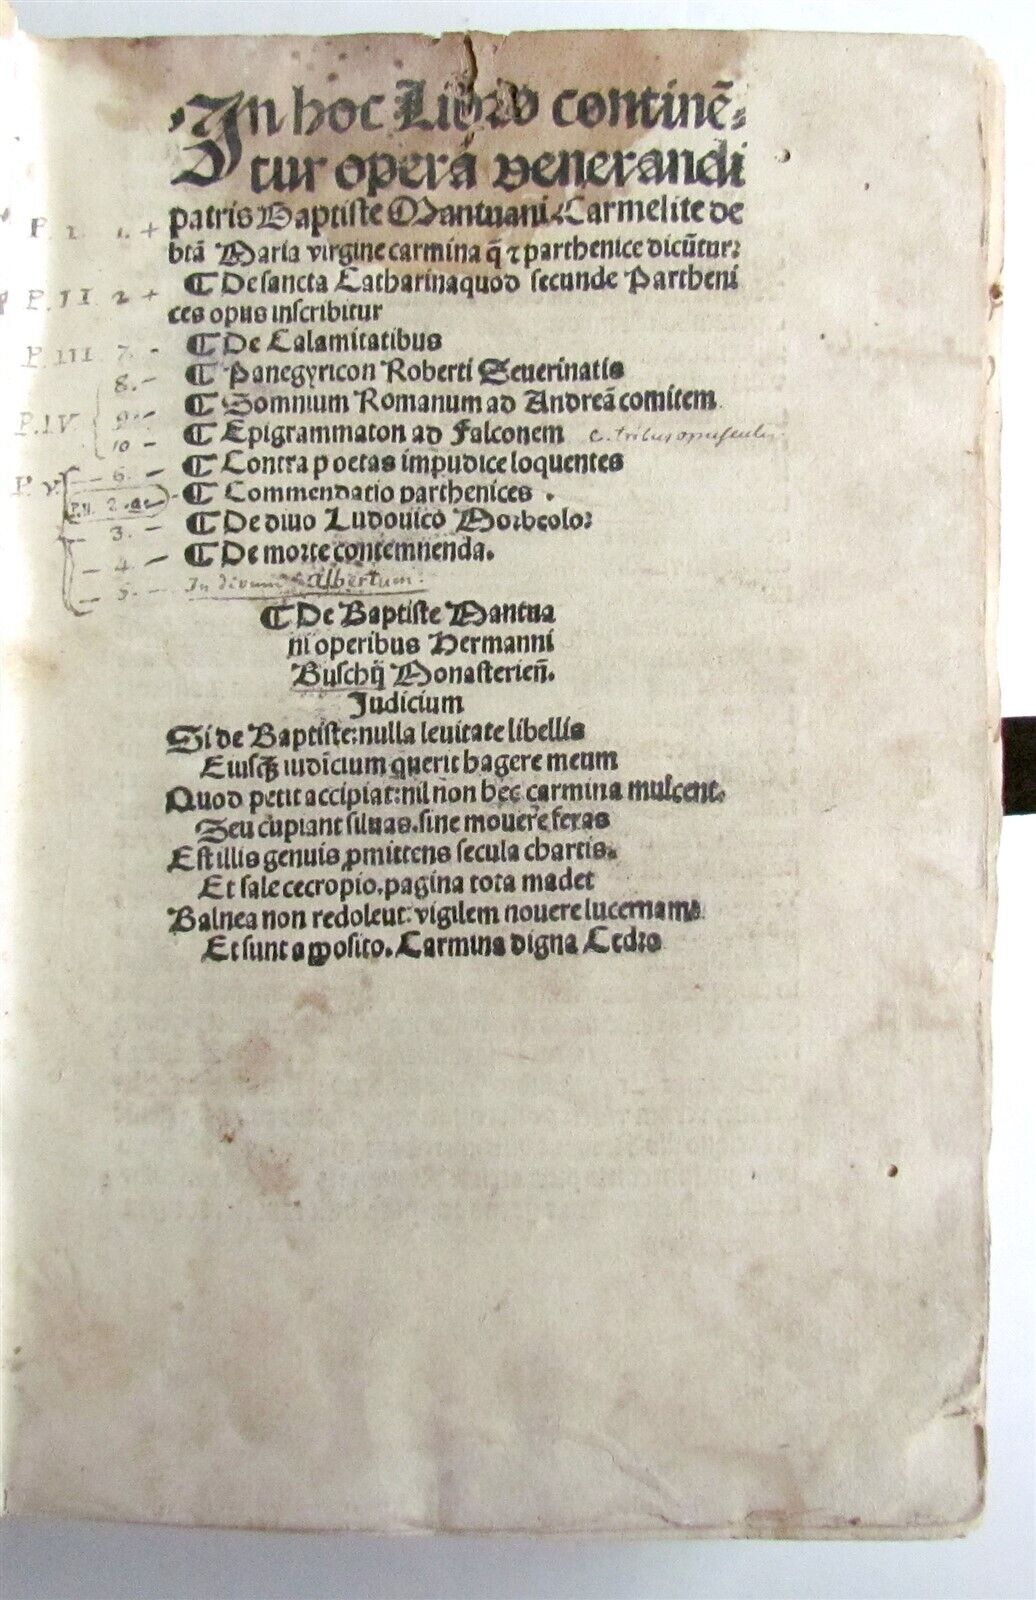 In hoc Libro continẽ⸗
tur opera venerandi
patris Baptiste Mantuani: Carmelite de
btã Maria virgine carmina q̃ ⁊ parthenice dicũtur:
¶ De sancta Catharina quod secunde Partheni
ces opus inscribitur
P. I. 1. +
P. II. 2 +
P. III 7. - ¶ De Calamitatibus
8. - ¶ Panegyricon Roberti Seuerinatis
P. IV 9. - ¶ Somnium Romanum ad Andreã comitem
10 - ¶ Epigrammaton ad Falconem c. tribus opusculis
P. V. - 6. - ¶ Contra poetas impudice loquentes
P. II. 2. ac - ¶ Commendatio parthenices.
3. - ¶ De diuo Ludouico Morbeolo:
- 4. - ¶ De morte contemnenda.
- 5. - In divum Albertum.
¶ De Baptiste Mantua
ni operibus Hermanni
Buschij Monasterieñ.
Judicium
Si de Baptiste: nulla leuitate libellis
Eiusqꝫ iudicium querit bagere meum
Quod petit accipiat: nil non hec carmina mulcent.
Seu cupiant siluas. siue mouere feras
Est illis genuis ꝓmittens secula chartis.
Et sale cecropio. pagina tota madet
Balnea non redoleut: vigilem nouere lucernam
Et sunt apposito. Carmina digna Cedro